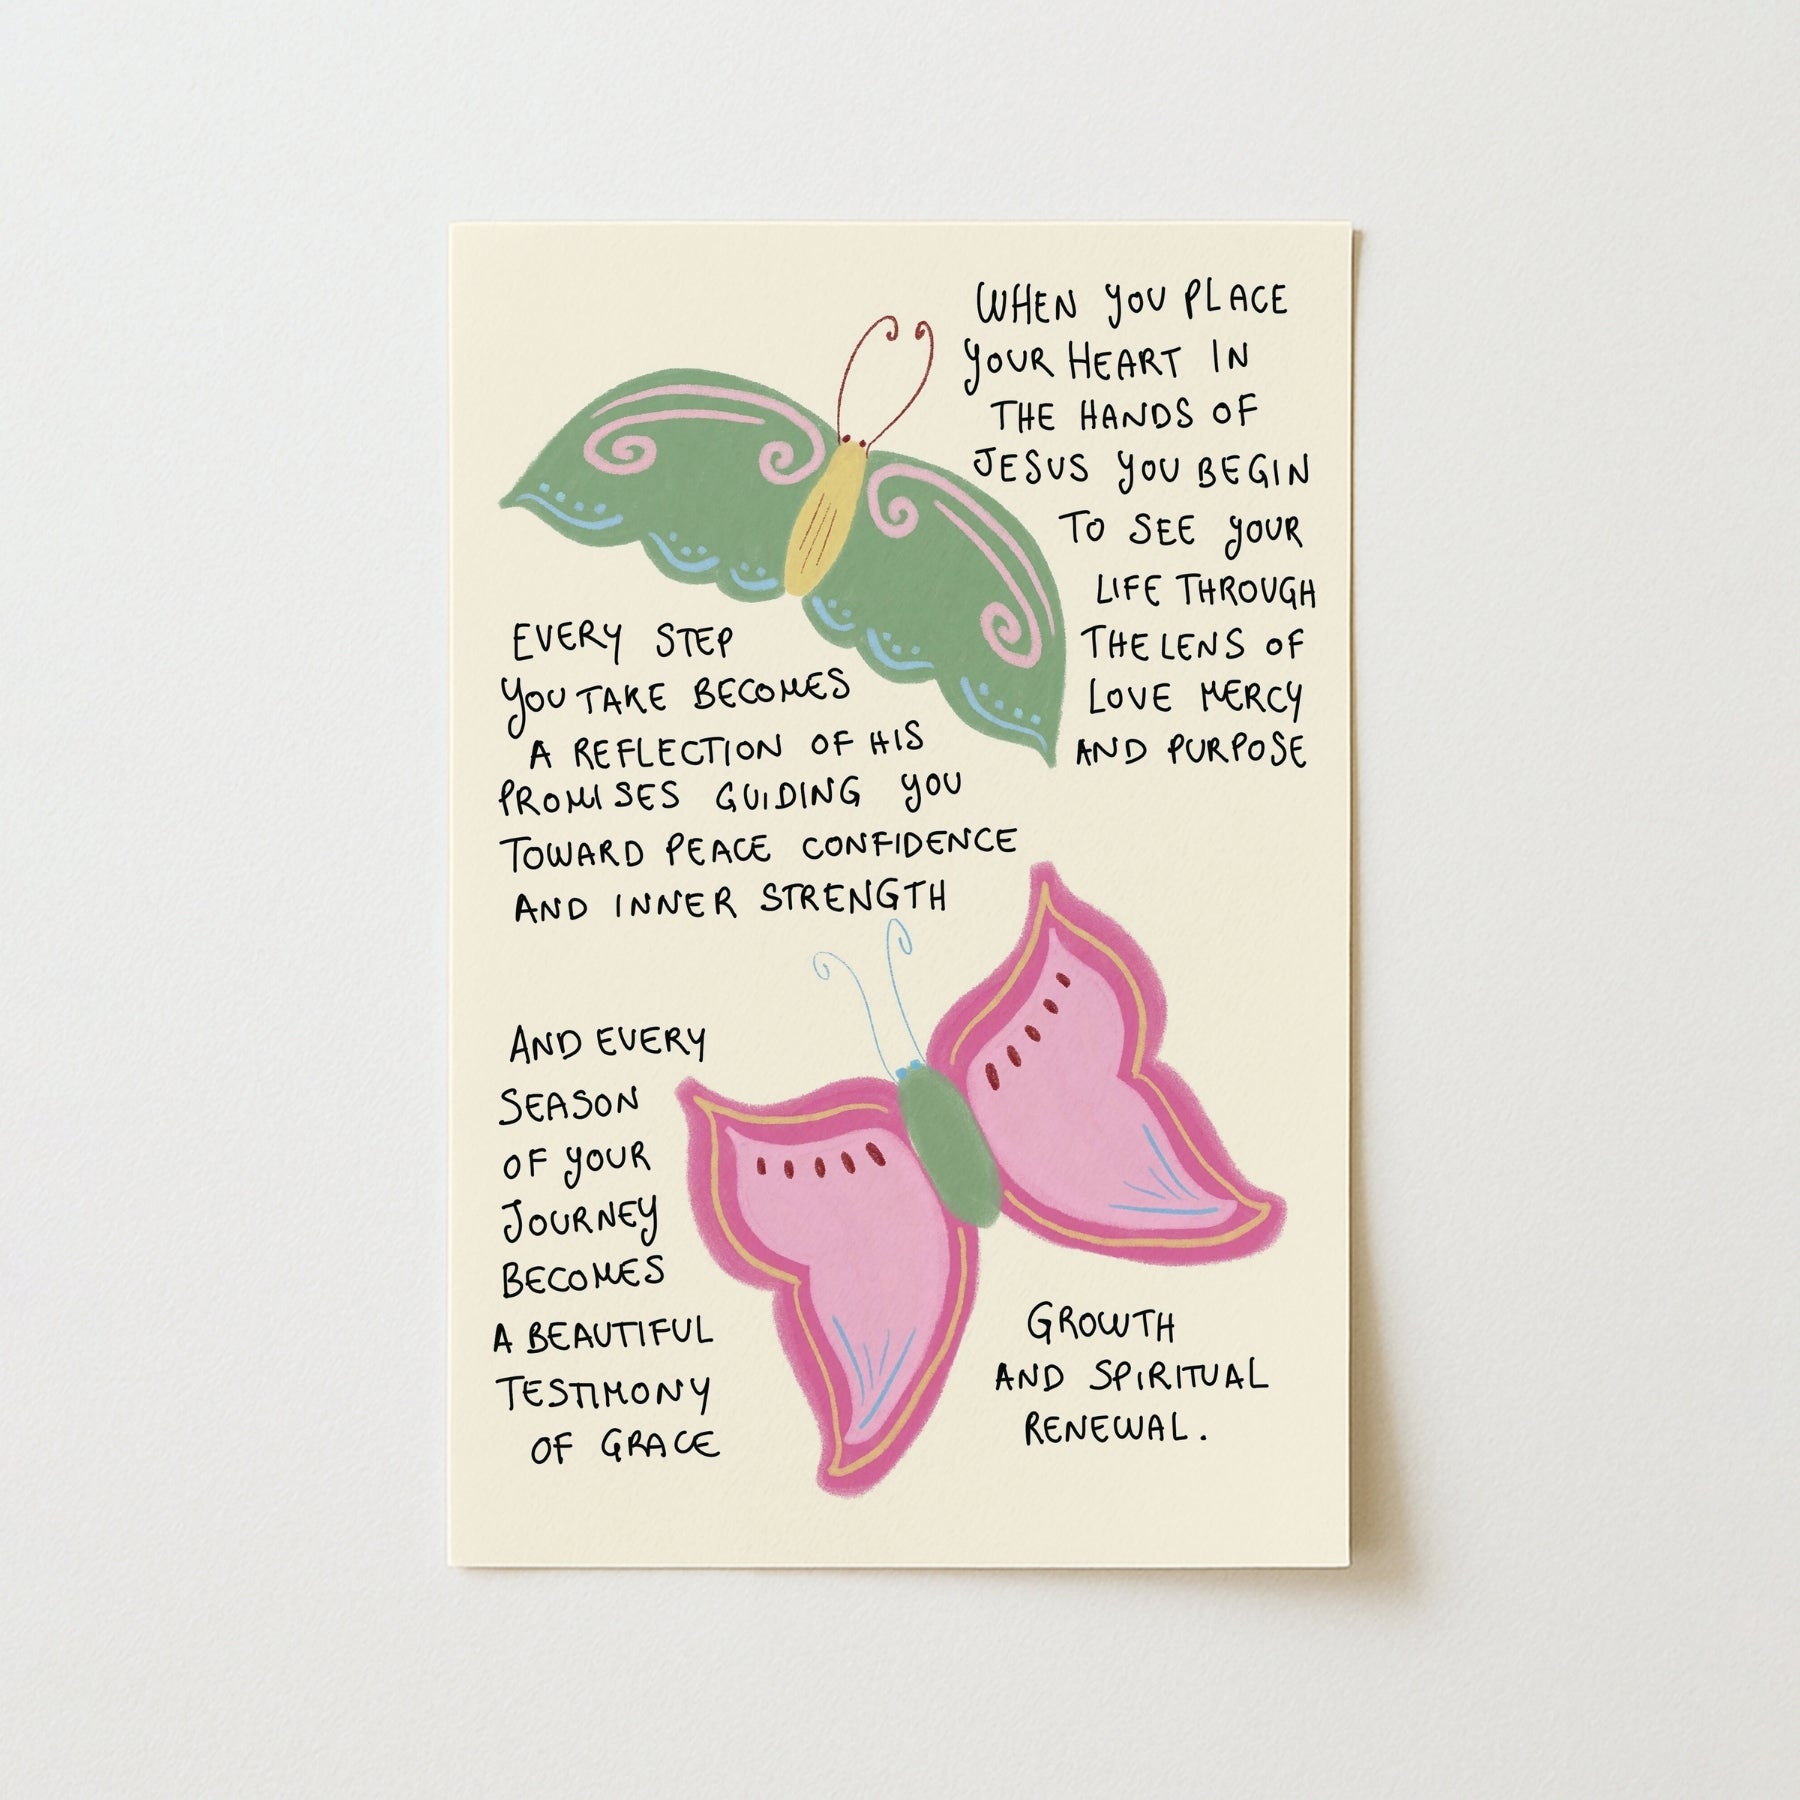 WHEN YOU PLACE
YOUR HEART IN
THE HANDS OF
JESUS YOU BEGIN
TO SEE YOUR
LIFE THROUGH
THE LENS OF
LOVE MERCY
AND PURPOSE
EVERY STEP
YOU TAKE BECOMES
A REFLECTION OF HIS
PROMISES GUIDING YOU
TOWARD PEACE CONFIDENCE
AND INNER STRENGTH
AND EVERY
SEASON
OF YOUR
JOURNEY
BECOMES
A BEAUTIFUL
TESTIMONY
OF GRACE
GROWTH
AND SPIRITUAL
RENEWAL.